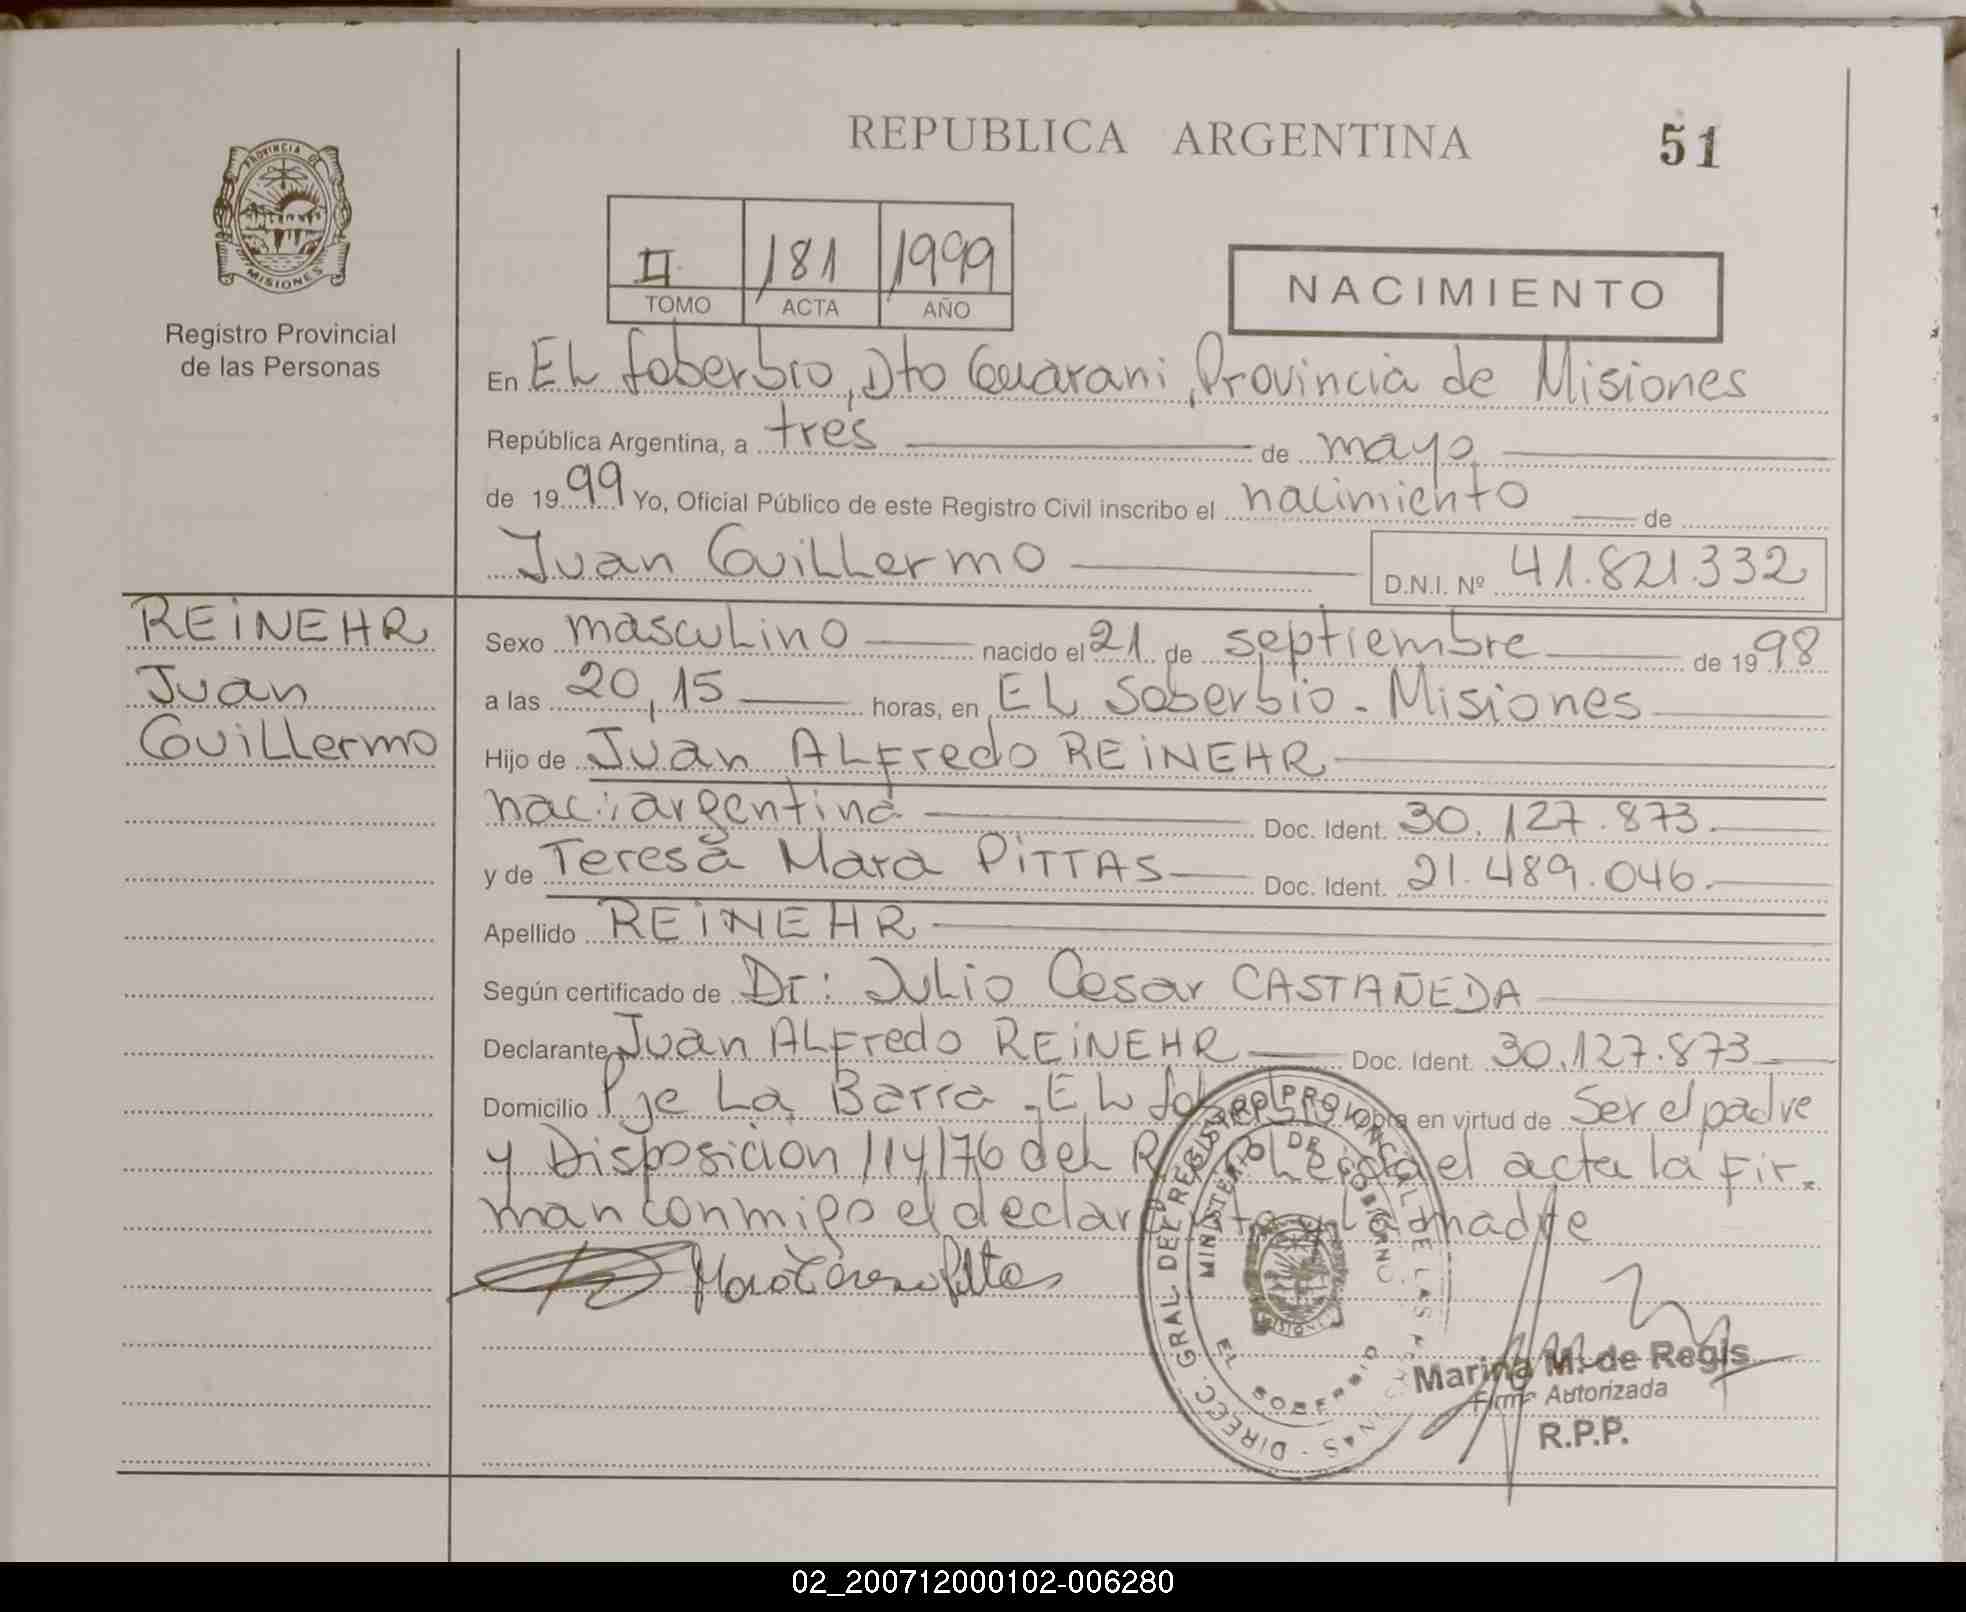 REPUBLICA ARGENTINA
51
PROVINCIA DE
MISIONES
Registro Provincial
de las Personas
II 181 1999
TOMO ACTA AÑO
NACIMIENTO
En EL Soberbio, Dto Guarani, Provincia de Misiones
República Argentina, a tres de mayo
de 1999 Yo, Oficial Público de este Registro Civil inscribo el nacimiento de
Juan Guillermo D.N.I. Nº 41.821.332
REINEHR
Juan
Guillermo
Sexo masculino nacido el 21 de septiembre de 1998
a las 20,15 horas, en EL Soberbio - Misiones
Hijo de Juan ALFredo REINEHR
nac: argentina Doc. Ident. 30.127.873.
y de Teresa Mara PITTAS Doc. Ident. 21.489.046.
Apellido REINEHR
Según certificado de Dr: Julio Cesar CASTAÑEDA
Declarante Juan ALFredo REINEHR Doc. Ident. 30.127.873
Domicilio Pje La Barra - EL en virtud de Ser el padre
y Disposicion 114/76 del el acta la fir-
man conmigo el declarante y la madre
DIRECC. GRAL. DEL REGISTRO PROVINCIAL DE LAS PERSONAS
MINISTERIO DE GOBIERNO
EL SOBERBIO
Marina M. de Regis
Firma Autorizada
R.P.P.
02_200712000102-006280